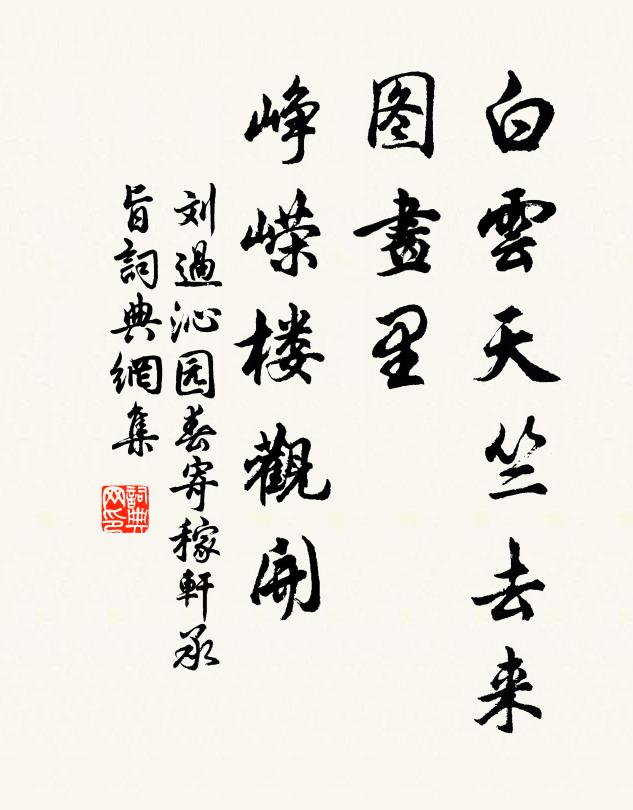 白雲天竺去来
图畫里
峥嵘楼觀開
刘過沁园春寄稼軒承
旨詞典網集
詞典网印